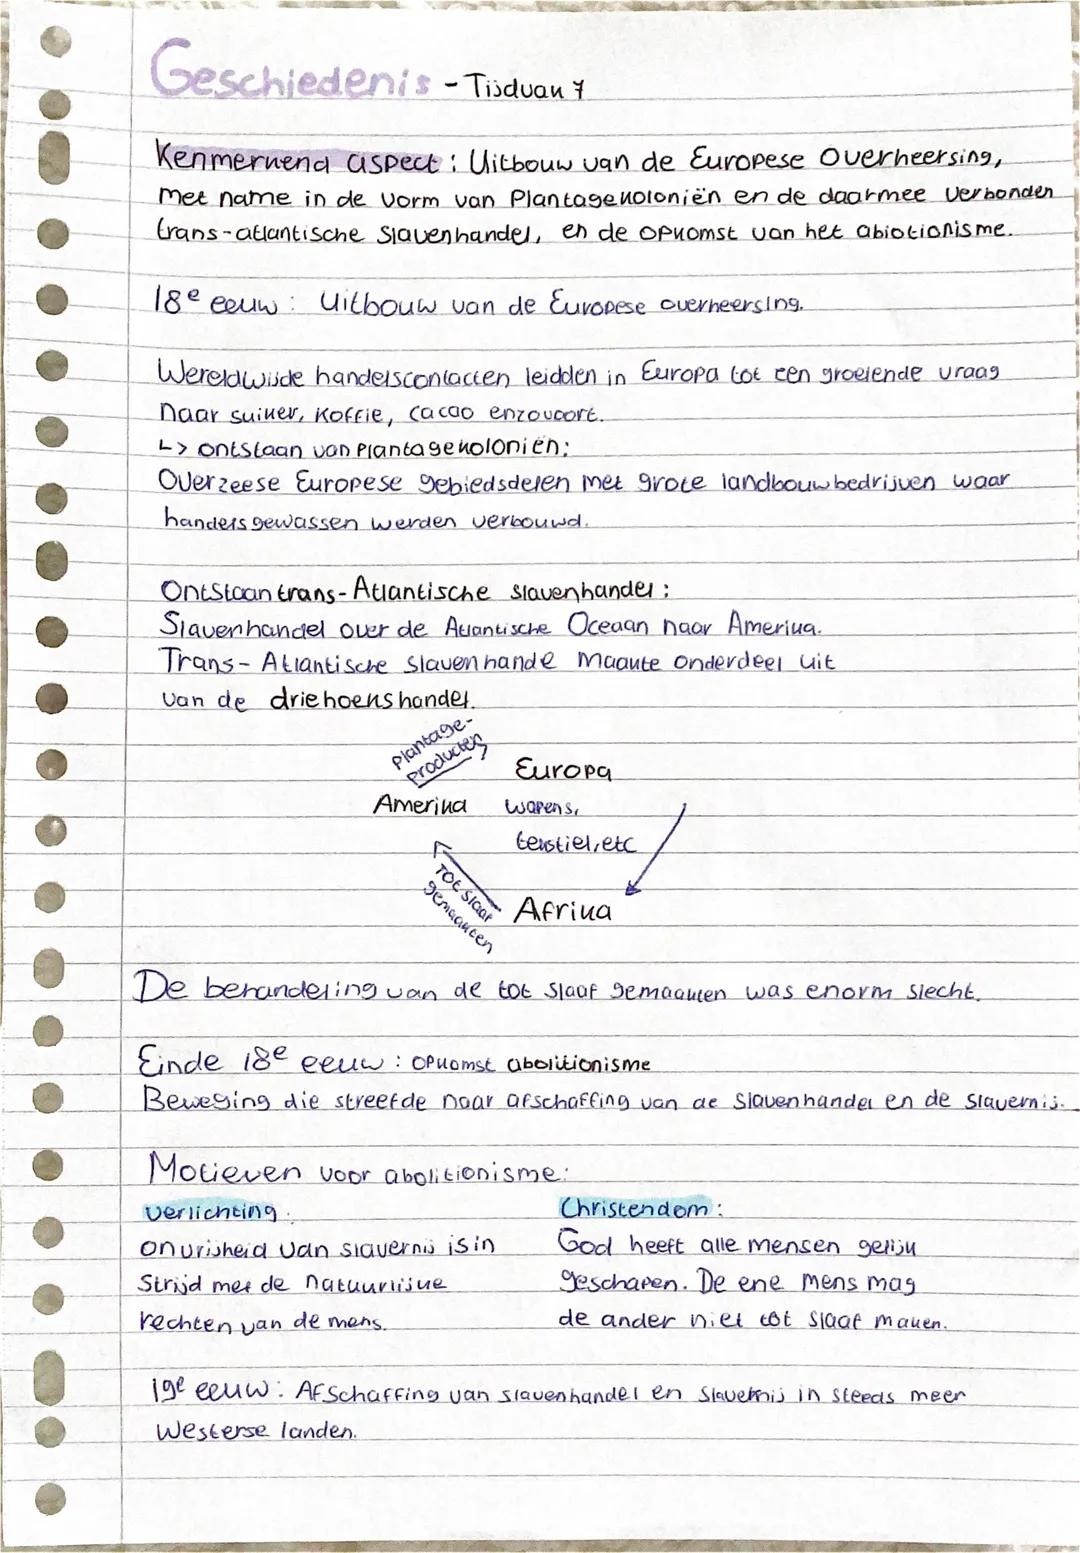 Geschiedenis - Tijdvak 7
Kenmerkend aspect : Uitbouw van de Europese Overheersing,
met name in de vorm van Plantagekoloniën en de daarmee verbonden
trans-atlantische slavenhandel, en de opkomst van het abiotionisme.
18e eeuw : Uitbouw van de Europese overheersing.
Wereldwijde handelscontacten leidden in Europa tot een groeiende vraag
naar suiker, koffie, cacao enzovoort.
↳ ontstaan van plantagekoloniën:
Overzeese Europese gebiedsdelen met grote landbouwbedrijven waar
handelsgewassen werden verbouwd.
Ontstaan trans-Atlantische slavenhandel :
Slavenhandel over de Atlantische Oceaan naar Amerika.
Trans-Atlantische slavenhande maakte onderdeel uit
van de driehoekshandel.
Plantage-
producten
Europa
Amerika
wapens,
textiel, etc
Tot slaaf
gemaakten
Afrika
De behandeling van de tot slaaf gemaakten was enorm slecht.
Einde 18e eeuw : opkomst abolitionisme
Beweging die streefde naar afschaffing van de slavenhandel en de slavernij.
Motieven voor abolitionisme:
verlichting :
onvrijheid van slavernij is in
strijd met de natuurlijke
rechten van de mens.
Christendom :
God heeft alle mensen gelijk
geschapen. De ene mens mag
de ander niet tot slaaf maken.
19e eeuw : Afschaffing van slavenhandel en slavernij in steeds meer
Westerse landen.